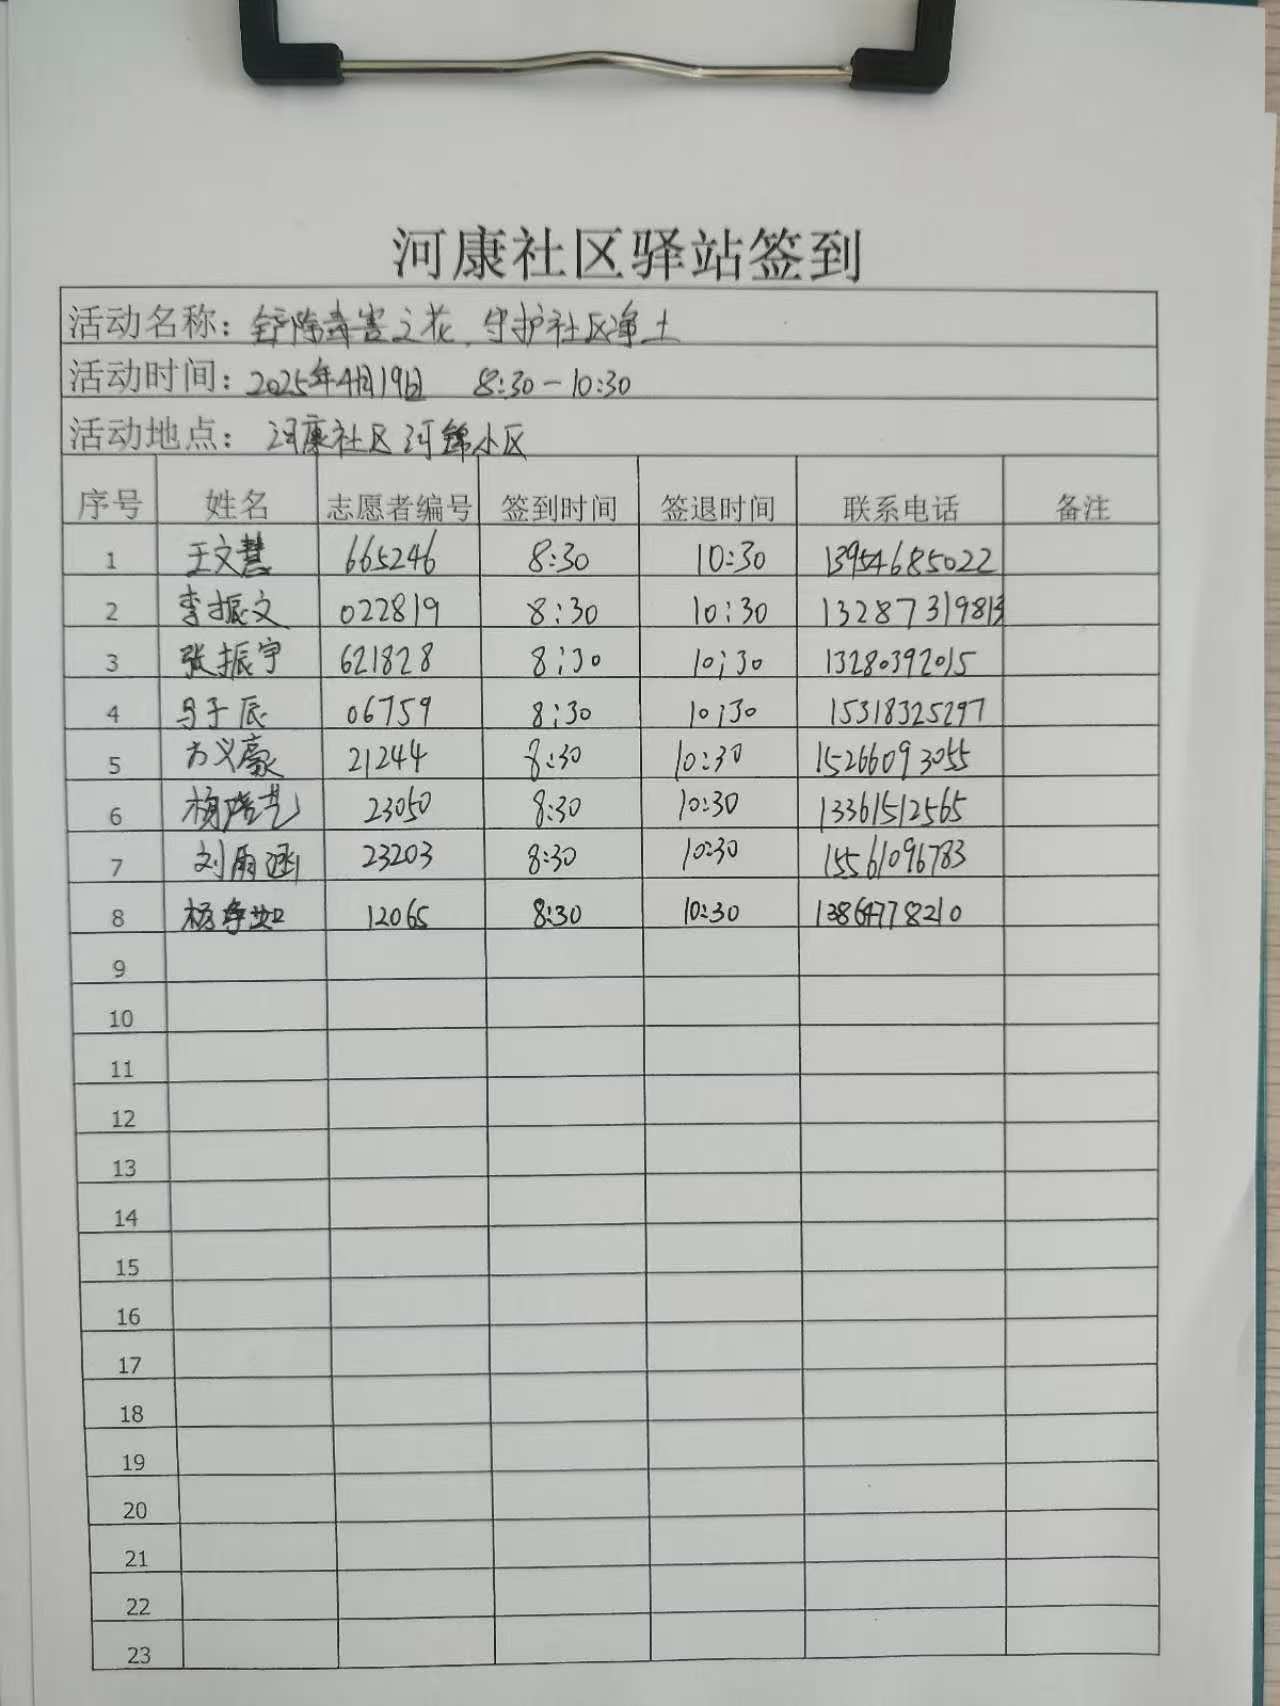 河康社区驿站签到
活动名称：铲除毒害之花，守护社区净土
活动时间：2025年4月19日 8:30-10:30
活动地点：河康社区河锦小区
序号 姓名 志愿者编号 签到时间 签退时间 联系电话 备注
1 王文慧 665246 8:30 10:30 13954685022
2 李振文 022819 8:30 10:30 13287319813
3 张振宇 621828 8:30 10:30 13280392015
4 马于辰 06759 8:30 10:30 15318325297
5 方义豪 21244 8:30 10:30 15266093055
6 23050 8:30 10:30 13361512565
7 刘雨涵 23203 8:30 10:30 15561096783
8 12065 8:30 10:30
9
10
11
12
13
14
15
16
17
18
19
20
21
22
23